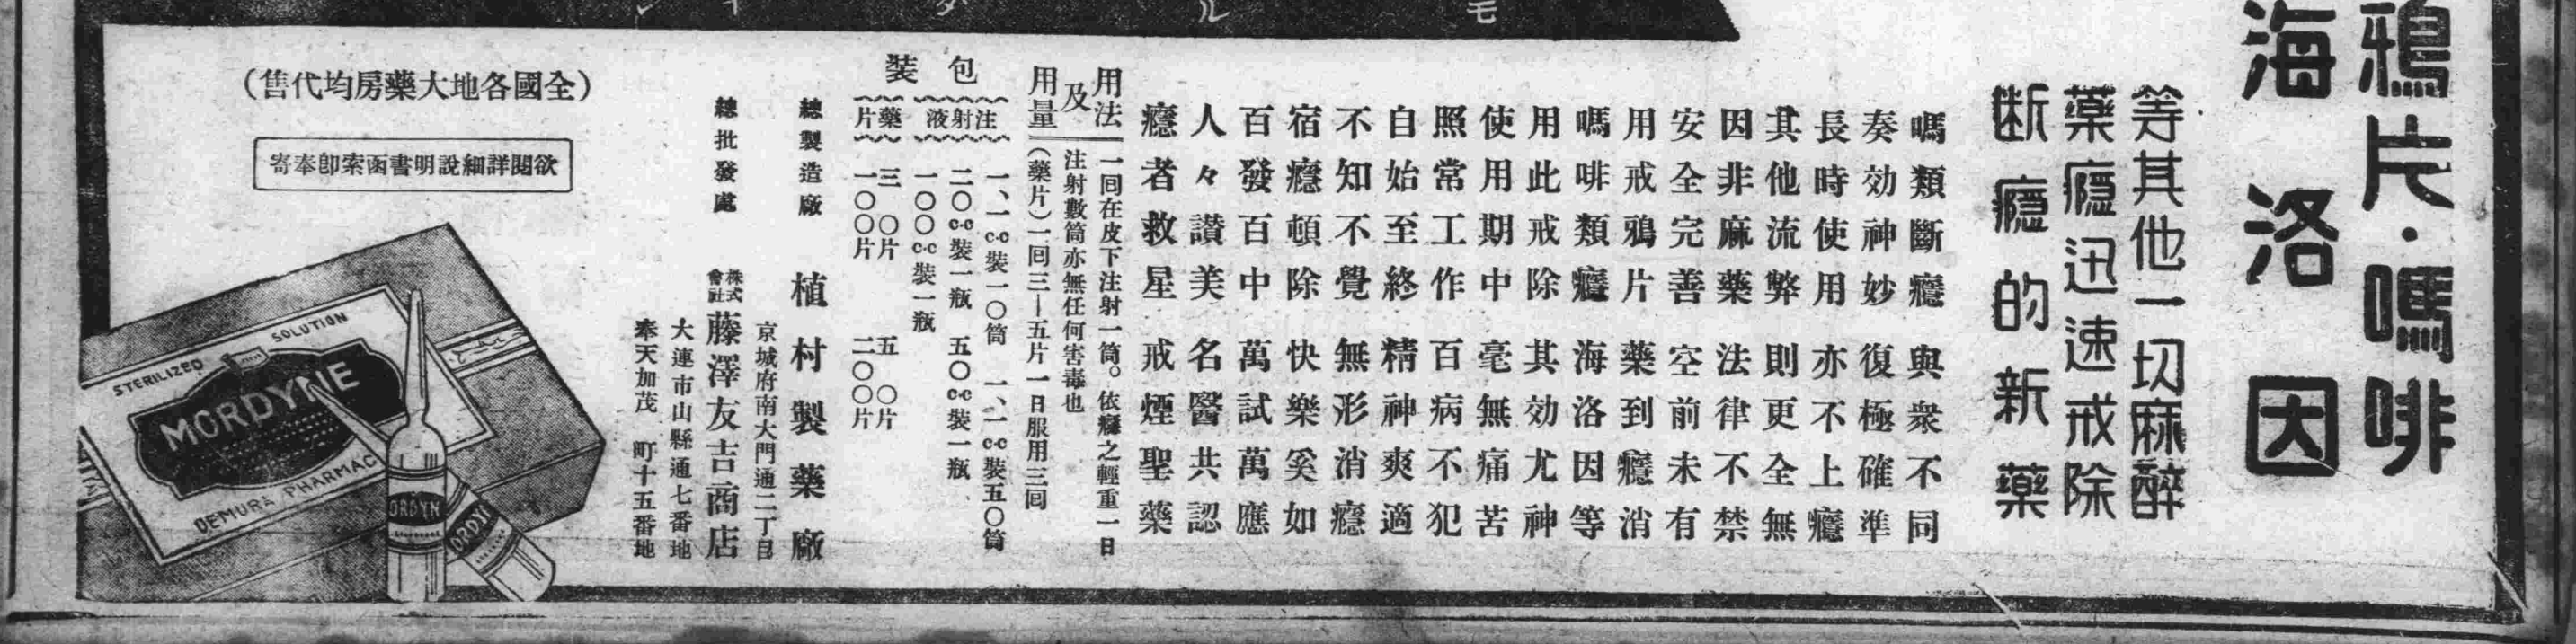 鴉片・嗎啡
海洛因
等其他一切麻醉
藥癮迅速戒除
断癮的新藥
嗎類斷癮 與衆不同
奏効神妙 復極確準
長時使用 亦不上癮
其他流弊 則更全無
因非麻藥 法律不禁
安全完善 空前未有
用戒鴉片 藥到癮消
嗎啡類癮 海洛因等
用此戒除 其効尤神
使用期中 毫無痛苦
照常工作 百病不犯
自始至終 精神爽適
不知不覺 無形消癮
宿癮頓除 快樂奚如
百發百中 萬試萬應
人々讃美 名醫共認
癮者救星 戒煙聖藥
用法及用量
一回在皮下注射一筒。依癮之輕重一日
注射數筒亦無任何害毒也
(藥片)一回三—五片一日服用三回
包裝
注射液
一、一c.c裝一〇筒 一、一c.c裝五〇筒
二〇c.c裝一瓶 五〇c.c裝一瓶
一〇〇c.c裝一瓶
藥片
三〇片 五〇片
一〇〇片 二〇〇片
總製造廠 植村製藥廠
京城府南大門通二丁目
總批發處 株式會社藤澤友吉商店
大連市山縣通七番地
奉天加茂町十五番地
(全國各地大藥房均代售)
欲閱詳細說明書函索卽奉寄
STERILIZED SOLUTION
MORDYNE
DEMURA PHARMAC
ORDYN
ORDYN
モルダイン